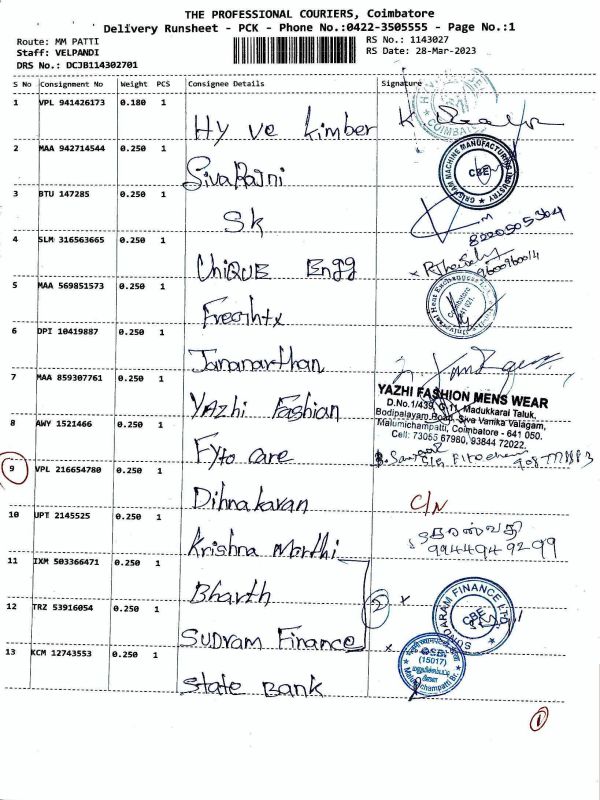 THE PROFESSIONAL COURIERS, Coimbatore
Delivery Runsheet - PCK - Phone No.:0422-3505555 - Page No.:1
Route: MM PATTI
RS No.: 1143027
Staff: VELPANDI
RS Date: 28-Mar-2023
DRS No.: DCJB114302701
S No Consignment No Weight PCS Consignee Details Signature
1 VPL 941426173 0.180 1
Hy ve Kimber
COIMBATORE
2 MAA 942714544 0.250 1
SivaRajni
MACHINE MANUFACTURING INDUSTRY
CBE
3 BTU 147285 0.250 1
SK
8220505364
4 SLM 316563665 0.250 1
UNiQUE Engg
9600960014
5 MAA 569851573 0.250 1
Universal Heat Exchangers
Coimbatore
641 021
6 DPI 10419887 0.250 1
Jananarthan
7 MAA 859307761 0.250 1
YAzhi Fashion
YAZHI FASHION MENS WEAR
D.No.1/439, G 11, Madukkarai Taluk,
Bodipalayam Road, Siva Vanika Valagam,
Malumichampatti, Coimbatore - 641 050.
Cell: 73055 67980, 93844 72022.
8 AWY 1521466 0.250 1
Fyto care
9 VPL 216654780 0.250 1
Dihnakaran
C/N
10 UPT 2145525 0.250 1
Krishna Morthi
9944949299
11 IXM 503366471 0.250 1
Bharth
2
12 TRZ 53916054 0.250 1
SUDram Finance
SUNDARAM FINANCE LTD.
CBE
13 KCM 12743553 0.250 1
State Bank
SBI
(15017)
Malumichampatti Br.
1